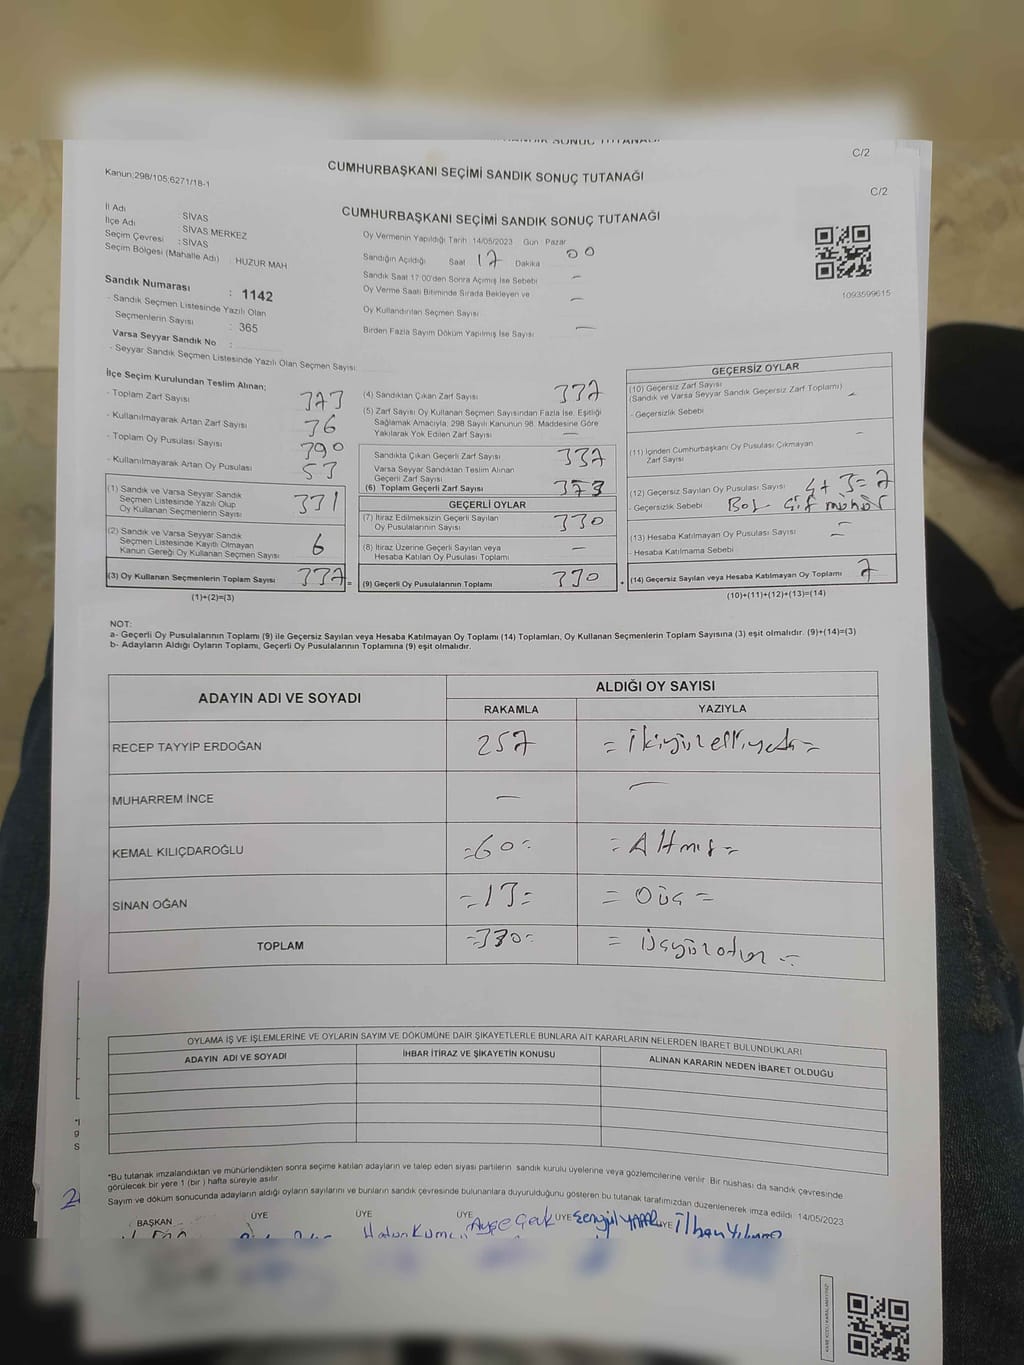 C/2
Kanun;298/105;6271/18-1
CUMHURBAŞKANI SEÇİMİ SANDIK SONUÇ TUTANAĞI
C/2
CUMHURBAŞKANI SEÇİMİ SANDIK SONUÇ TUTANAĞI
İl Adı SİVAS
İlçe Adı SİVAS MERKEZ
Seçim Çevresi : SİVAS
Seçim Bölgesi (Mahalle Adı) : HUZUR MAH
Sandık Numarası : 1142
- Sandık Seçmen Listesinde Yazılı Olan
Seçmenlerin Sayısı : 365
Varsa Seyyar Sandık No :
- Seyyar Sandık Seçmen Listesinde Yazılı Olan Seçmen Sayısı:
Oy Vermenin Yapıldığı Tarih 14/05/2023 Gün : Pazar
Sandığın Açıldığı Saat 17 Dakika 00
Sandık Saat 17:00'den Sonra Açımış İse Sebebi -
Oy Verme Saati Bitiminde Sırada Bekleyen ve
Oy Kullandırılan Seçmen Sayısı -
Birden Fazla Sayım Döküm Yapılmış İse Sayısı -
1093599615
İlçe Seçim Kurulundan Teslim Alınan;
- Toplam Zarf Sayısı 373
- Kullanılmayarak Artan Zarf Sayısı 36
- Toplam Oy Pusulası Sayısı 390
- Kullanılmayarak Artan Oy Pusulası 53
(1) Sandık ve Varsa Seyyar Sandık
Seçmen Listesinde Yazılı Olup
Oy Kullanan Seçmenlerin Sayısı 331
(2) Sandık ve Varsa Seyyar Sandık
Seçmen Listesinde Kayıtlı Olmayan
Kanun Gereği Oy Kullanan Seçmen Sayısı 6
(3) Oy Kullanan Seçmenlerin Toplam Sayısı 337 =
(1)+(2)=(3)
(4) Sandıktan Çıkan Zarf Sayısı 337
(5) Zarf Sayısı Oy Kullanan Seçmen Sayısından Fazla İse, Eşitliği
Sağlamak Amacıyla, 298 Sayılı Kanunun 98. Maddesine Göre
Yakılarak Yok Edilen Zarf Sayısı -
Sandıkta Çıkan Geçerli Zarf Sayısı 337
Varsa Seyyar Sandıktan Teslim Alınan
Geçerli Zarf Sayısı
(6) Toplam Geçerli Zarf Sayısı 373
GEÇERLİ OYLAR
(7) İtiraz Edilmeksizin Geçerli Sayılan
Oy Pusulalarının Sayısı 330
(8) İtiraz Üzerine Geçerli Sayılan veya
Hesaba Katılan Oy Pusulası Toplamı -
(9) Geçerli Oy Pusulalarının Toplamı 330 +
GEÇERSİZ OYLAR
(10) Geçersiz Zarf Sayısı
(Sandık ve Varsa Seyyar Sandık Geçersiz Zarf Toplamı) -
- Geçersizlik Sebebi
(11) İçinden Cumhurbaşkanı Oy Pusulası Çıkmayan
Zarf Sayısı -
(12) Geçersiz Sayılan Oy Pusulası Sayısı 4+3=7
- Geçersizlik Sebebi Boş - Çift mühür
(13) Hesaba Katılmayan Oy Pusulası Sayısı -
- Hesaba Katılmama Sebebi -
(14) Geçersiz Sayılan veya Hesaba Katılmayan Oy Toplamı 7
(10)+(11)+(12)+(13)=(14)
NOT:
a- Geçerli Oy Pusulalarının Toplamı (9) ile Geçersiz Sayılan veya Hesaba Katılmayan Oy Toplamı (14) Toplamları, Oy Kullanan Seçmenlerin Toplam Sayısına (3) eşit olmalıdır. (9)+(14)=(3)
b- Adayların Aldığı Oyların Toplamı, Geçerli Oy Pusulalarının Toplamına (9) eşit olmalıdır.
ADAYIN ADI VE SOYADI ALDIĞI OY SAYISI
RAKAMLA YAZIYLA
RECEP TAYYİP ERDOĞAN 257 = ikiyüzelliyedi =
MUHARREM İNCE - -
KEMAL KILIÇDAROĞLU =60= = Altmış =
SİNAN OĞAN =13= = Oüç =
TOPLAM =330= = üçyüzotuz =
OYLAMA İŞ VE İŞLEMLERİNE VE OYLARIN SAYIM VE DÖKÜMÜNE DAİR ŞİKAYETLERLE BUNLARA AİT KARARLARIN NELERDEN İBARET BULUNDUKLARI
ADAYIN ADI VE SOYADI İHBAR İTİRAZ VE ŞİKAYETİN KONUSU ALINAN KARARIN NEDEN İBARET OLDUĞU
*Bu tutanak imzalandıktan ve mühürlendikten sonra seçime katılan adayların ve talep eden siyasi partilerin sandık kurulu üyelerine veya gözlemcilerine verilir. Bir nüshası da sandık çevresinde
görülecek bir yere 1 (bir ) hafta süreyle asılır
Sayım ve döküm sonucunda adayların aldığı oyların sayılarını ve bunların sandık çevresinde bulunanlara duyurulduğunu gösteren bu tutanak tarafımızdan düzenlenerek imza edildi. 14/05/2023
BAŞKAN ÜYE ÜYE ÜYE ÜYE ÜYE
Ayşe Şengül YAŞAR İlhan Yılmaz